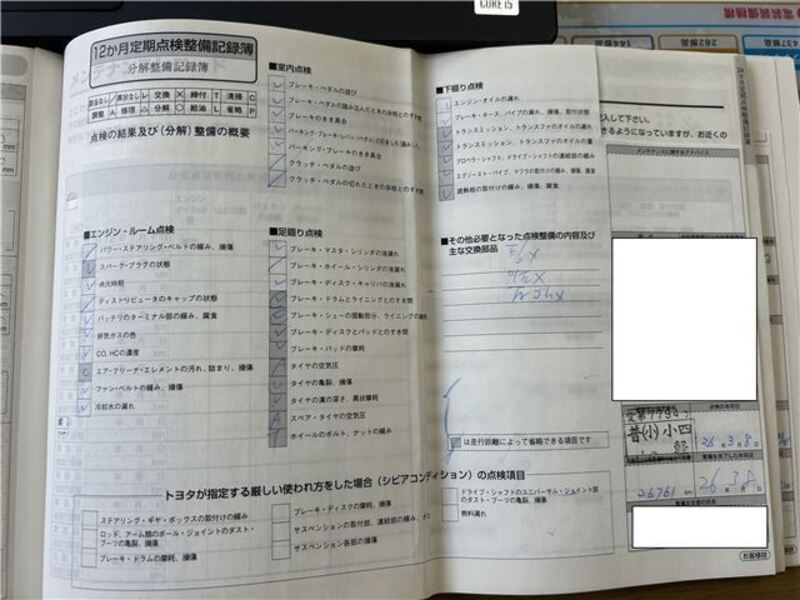 CORE i5
12か月定期点検整備記録簿
分解整備記録簿
交換 × 締付 T 清掃 C
調整 A 修理 △ 分解 ○ 給油 L 省略 P
点検の結果及び(分解)整備の概要
■エンジン・ルーム点検
パワー・ステアリング・ベルトの緩み、損傷
スパーク・プラグの状態
点火時期
ディストリビュータのキャップの状態
バッテリのターミナル部の緩み、腐食
排気ガスの色
CO, HCの濃度
エア・クリーナ・エレメントの汚れ、詰まり、損傷
ファン・ベルトの緩み、損傷
冷却水の漏れ
■室内点検
ブレーキ・ペダルの遊び
ブレーキ・ペダルの踏み込んだときの床板とのすき間
ブレーキのきき具合
パーキング・ブレーキ・レバー(ペダル)の引きしろ(踏みしろ)
パーキング・ブレーキのきき具合
クラッチ・ペダルの遊び
クラッチ・ペダルの切れたときの床板とのすき間
■足廻り点検
ブレーキ・マスタ・シリンダの液漏れ
ブレーキ・ホイール・シリンダの液漏れ
ブレーキ・ディスク・キャリパの液漏れ
ブレーキ・ドラムとライニングとのすき間
ブレーキ・シューの摺動部分、ライニングの摩耗
ブレーキ・ディスクとパッドとのすき間
ブレーキ・パッドの摩耗
タイヤの空気圧
タイヤの亀裂、損傷
タイヤの溝の深さ、異状摩耗
スペア・タイヤの空気圧
ホイールのボルト、ナットの緩み
■下廻り点検
エンジン・オイルの漏れ
ブレーキ・ホース、パイプの漏れ、損傷、取付状態
トランスミッション、トランスファのオイルの漏れ
トランスミッション、トランスファのオイルの量
プロペラ・シャフト、ドライブ・シャフトの連結部の緩み
エグゾースト・パイプ、マフラの取付けの緩み、損傷、腐食
遮熱板の取付けの緩み、損傷、腐食
■その他必要となった点検整備の内容及び
主な交換部品
は走行距離によって省略できる項目です
トヨタが指定する厳しい使われ方をした場合(シビアコンディション)の点検項目
ステアリング・ギヤ・ボックスの取付けの緩み
ロッド、アーム類のボール・ジョイントのダスト・
ブーツの亀裂、損傷
ブレーキ・ドラムの摩耗、損傷
ブレーキ・ディスクの摩耗、損傷
サスペンションの取付部、連結部の緩み、ガタ
サスペンション各部の損傷
ドライブ・シャフトのユニバーサル・ジョイント部
のダスト・ブーツの亀裂、損傷
燃料漏れ
入して下さい。
きるようになっていますが、お近くの
メンテナンスに関するアドバイス
点検の年月日
普(小)小四
軽
26年3月8日
整備を完了した年月日
26761 km
26 3 8
お客様控